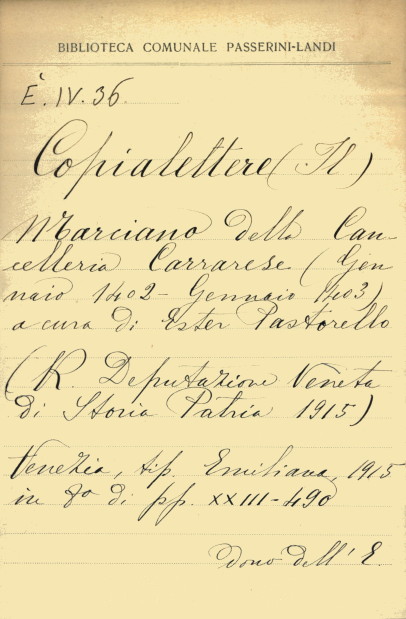 BIBLIOTECA COMUNALE PASSERINI-LANDI
E. IV. 36
Copialettere (Il)
Marciano della Can-
celleria Carrarese (Gen
naio 1402 - Gennaio 1403)
a cura di Ester Pastorello
(R. Deputazione Veneta
di Storia Patria 1915)
Venezia, tip. Emiliana, 1915
in 8º di pp. XXIII-490
dono dell' E.